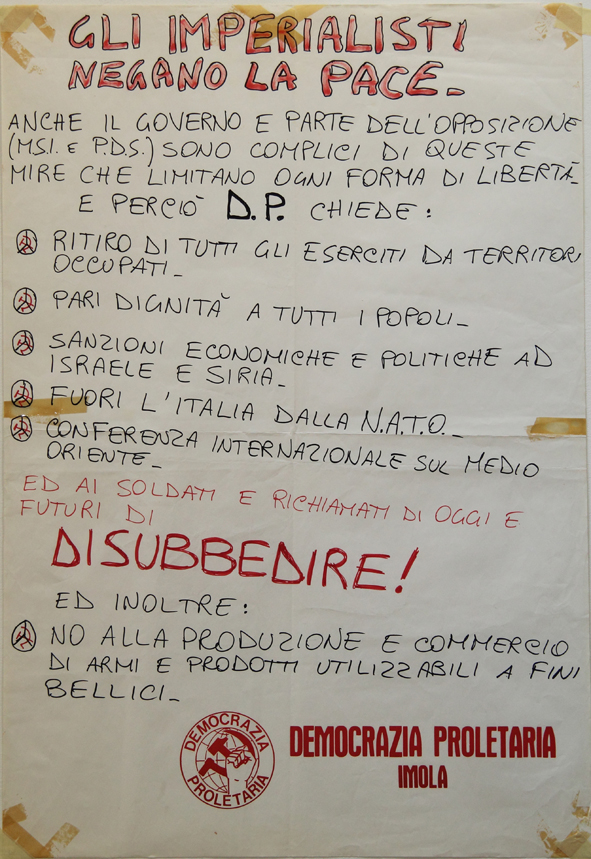 GLI IMPERIALISTI
NEGANO LA PACE_
ANCHE IL GOVERNO E PARTE DELL'OPPOSIZIONE
(M.S.I. E P.D.S.) SONO COMPLICI DI QUESTE
MIRE CHE LIMITANO OGNI FORMA DI LIBERTÀ_
E PERCIÒ D.P. CHIEDE:
RITIRO DI TUTTI GLI ESERCITI DA TERRITORI
OCCUPATI_
PARI DIGNITÀ A TUTTI I POPOLI_
SANZIONI ECONOMICHE E POLITICHE AD
ISRAELE E SIRIA_
FUORI L'ITALIA DALLA N.A.T.O._
CONFERENZA INTERNAZIONALE SUL MEDIO
ORIENTE_
ED AI SOLDATI E RICHIAMATI DI OGGI E
FUTURI DI
DISUBBEDIRE!
ED INOLTRE:
NO ALLA PRODUZIONE E COMMERCIO
DI ARMI E PRODOTTI UTILIZZABILI A FINI
BELLICI_
DEMOCRAZIA
PROLETARIA
DEMOCRAZIA PROLETARIA
IMOLA